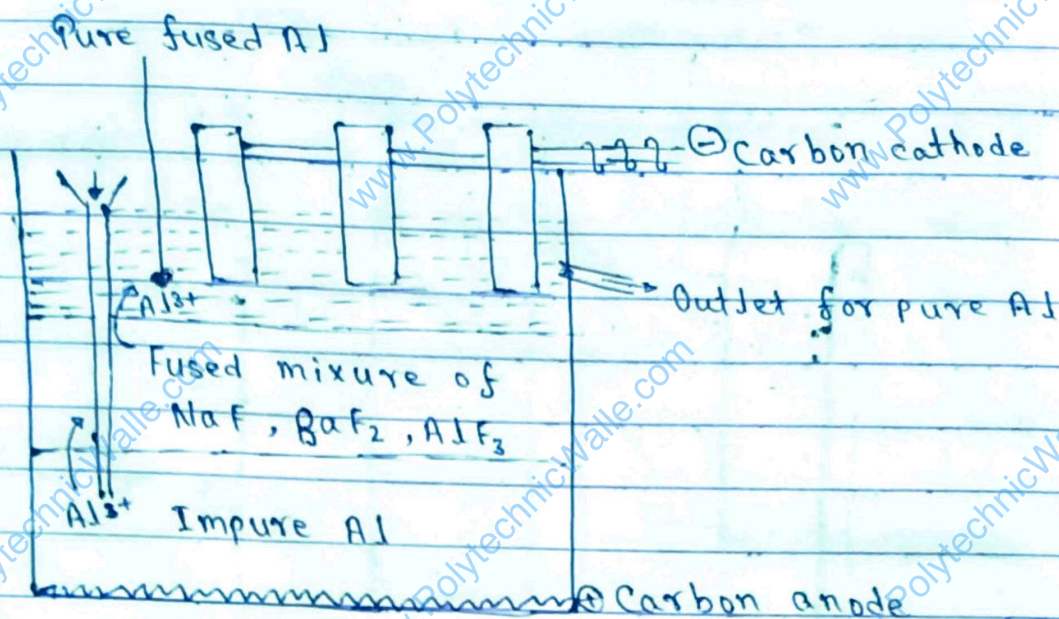 Pure fused Al
⊖ Carbon cathode
Al3+
Outlet for pure Al
Fused mixure of
NaF, BaF2, AlF3
Al3+ Impure Al
⊕ Carbon anode
www.PolytechnicWalle.com